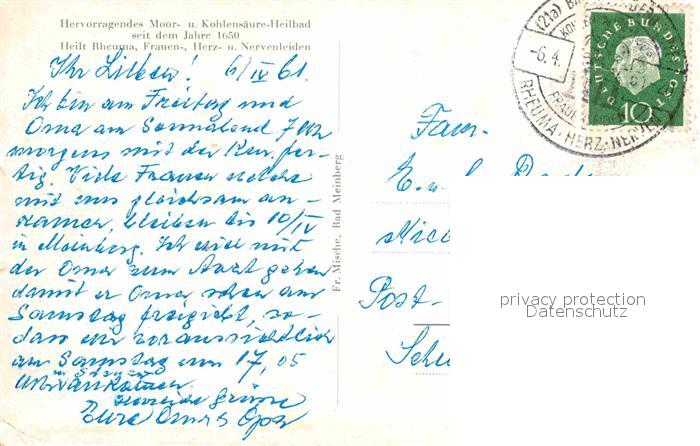 Hervorragendes Moor- u. Kohlensäure-Heilbad
seit dem Jahre 1650
Heilt Rheuma, Frauen-, Herz- u. Nervenleiden
Ihr Lieben! 6/IV 61.
Ich bin am Freitag und
Oma am Sonnabend 7 Uhr
morgens mit der Kur fer-
tig. Viele Frauen welche
mit uns gleichsam an-
kamen, bleiben bis 10/IV
in Meinberg. Ich will mit
der Oma zum Arzt gehen
damit er Oma schon am
Samstag freigiebt, so-
dass wir voraussichtlich
am Samstag um 17,05
ankommen.
Herzliche Grüsse
Eure Oma u Opa
Fr. Mische, Bad Meinberg
(21a) BAD
-6.4.
RHEUMA·HERZ·NERVE
DEUTSCHE BUNDESPOST
10
Fam.
Post-
privacy protection
Datenschutz